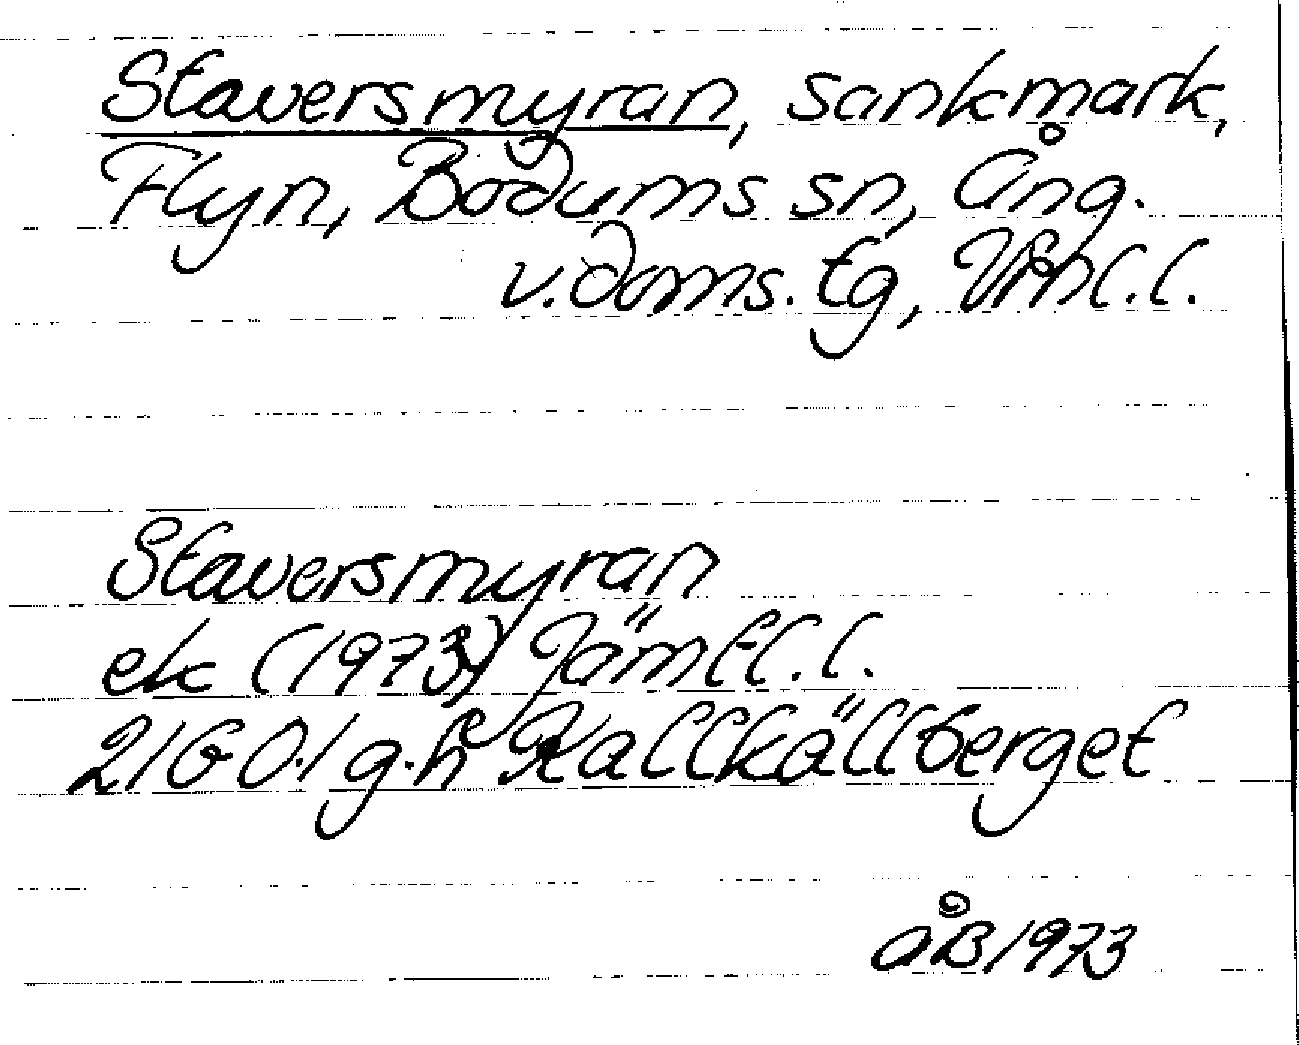 Staversmyran, sankmark,
Flyn, Bodums sn, Ång.
v. doms. tg, Vbn l.l.
Staversmyran
ek (1973) Jämtl.l.
21G 0.1 g.h Kallkällberget
åB 1973